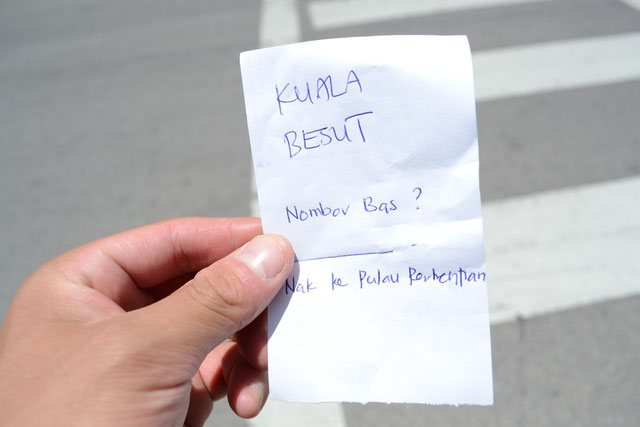 KUALA
BESUT
Nombor Bas ?
Nak ke Pulau Perhentian